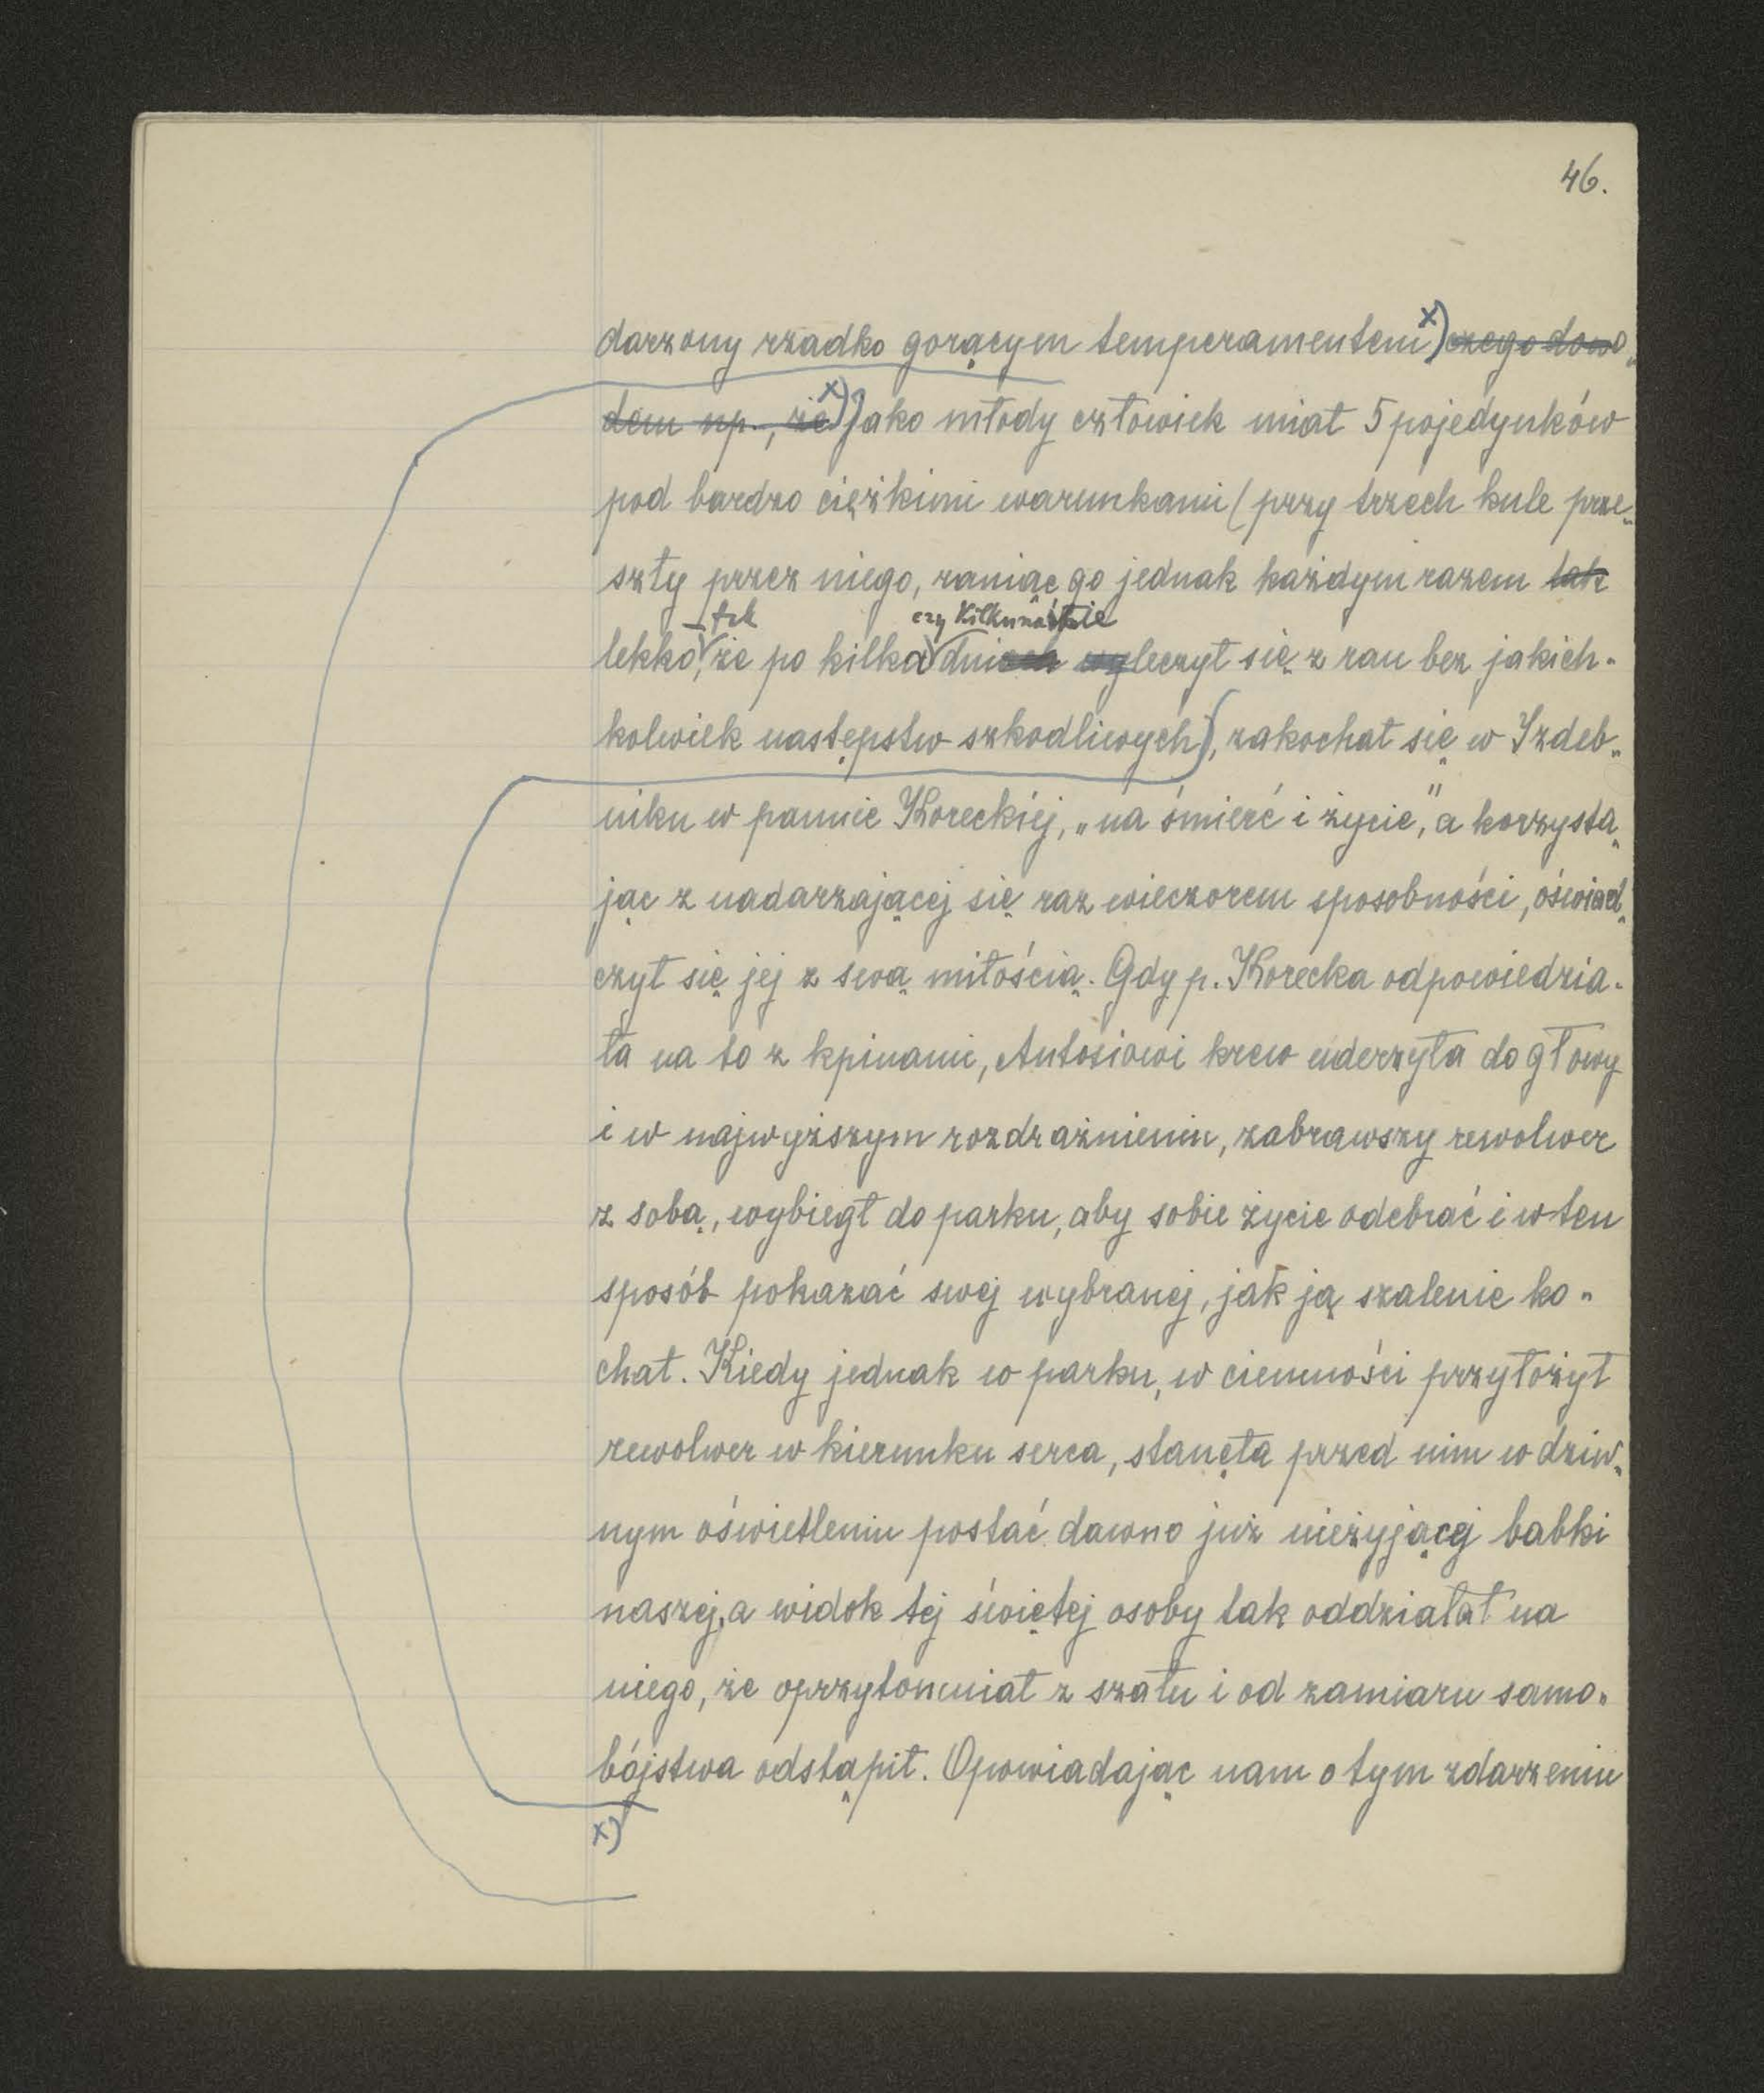 46.
darzony rzadko gorącym temperamentem x) czego dowo„
dem np., że x) Jako młody człowiek miał 5 pojedynków
pod bardzo ciężkimi warunkami (przy trzech kule prze„
szły przez niego, raniąc go jednak każdym razem tak
– tak czy kilkunastie
lekko, że po kilka dniach wyleczył się z ran bez jakich-
kolwiek następstw szkodliwych), zakochał się w Izdeb„
niku w pannie Koreckiéj, „na śmierć i życie", a korzysta„
jąc z nadarzającej się raz wieczorem sposobności, oświad„
czył się jej z swą miłością. Gdy p. Korecka odpowiedzia-
ła na to z kpinami, Antosiowi krew uderzyła do głowy
i w najwyższym rozdrażnieniu, zabrawszy rewolwer
z sobą, wybiegł do parku, aby sobie życie odebrać i w ten
sposób pokazać swej wybranej, jak ją szalenie ko„
chał. Kiedy jednak w parku, w ciemności przyłożył
rewolwer w kierunku serca, stanęła przed nim w dziw„
nym oświetleniu postać dawno już nieżyjącej babki
naszej, a widok tej świętej osoby tak oddziałał na
niego, że oprzytomniał z szału i od zamiaru samo„
bójstwa odstąpił. Opowiadając nam o tym zdarzeniu
x)